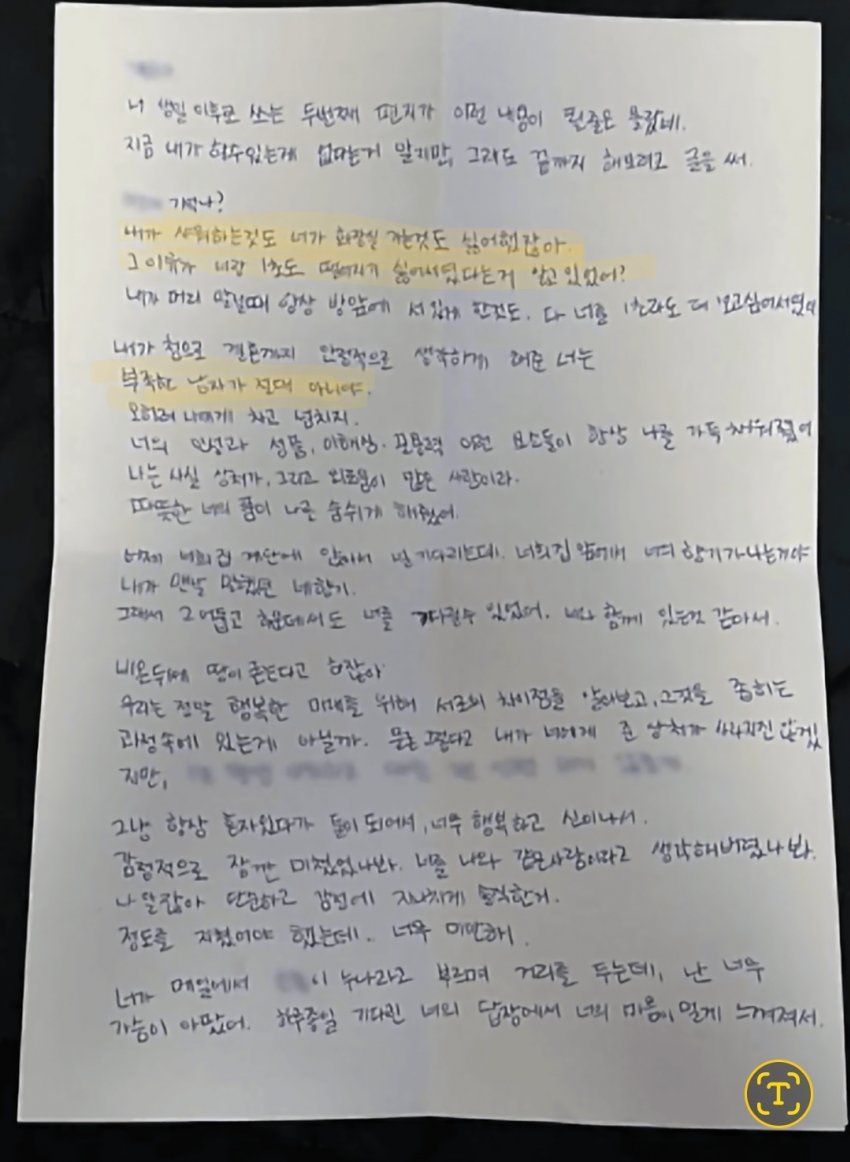 너 생일 이후로 쓰는 두번째 편지가 이런 내용이 될줄은 몰랐네.
지금 내가 할수있는게 없다는거 알지만, 그래도 끝까지 해보려고 글을 써.
기억나?
내가 샤워하는것도 너가 화장실 가는것도 싫어했잖아.
그 이유가 너랑 1초도 떨어지기 싫어서였다는거 알고 있었어?
내가 머리 말릴때 항상 방앞에 서있게 한것도. 다 너를 1초라도 더 보고싶어서였어
내가 첨으로 결혼까지 안정적으로 생각하게 해준 너는
부족한 남자가 절대 아니야.
오히려 나에게 차고 넘치지.
너의 인성과 성품, 이해심·포용력 이런 요소들이 항상 나를 가득 채워줬어
나는 사실 상처가, 그리고 외로움이 많은 사람이라.
따뜻한 너의 품이 나를 숨쉬게 해줬어.
어제 너희집 계단에 앉아서 널 기다리는데. 너희집 앞에서 너의 향기가나는거야
내가 맨날 말했던 네향기.
그래서 그 어둡고 추운데서도 너를 기다릴수 있었어. 너와 함께 있는것 같아서.
비온뒤에 땅이 굳는다고 하잖아
우리는 정말 행복한 미래를 위해 서로의 차이점을 알아보고, 그것을 좁히는
과정속에 있는게 아닐까. 물론 그렇다고 내가 너에게 준 상처가 사라지진 않겠
지만,
그냥 항상 혼자있다가 둘이 되어서, 너무 행복하고 신이나서.
감정적으로 잠깐 미쳤었나봐. 너를 나와 같은사람이라고 생각해버렸나봐.
나 알잖아 단순하고 감정에 지나치게 솔직한거.
정도를 지켰어야 했는데.. 너무 미안해.
너가 메일에서 이 누나라고 부르며 거리를 두는데, 난 너무
가슴이 아팠어. 하루종일 기다린 너의 답장에서 너의 마음이 멀게 느껴져서.